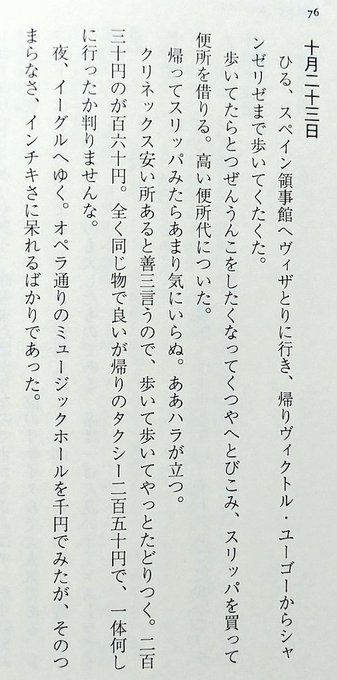 76
十月二十三日
ひる、スペイン領事館へヴィザとりに行き、帰りヴィクトル・ユーゴーからシャ
ンゼリゼまで歩いてくたくた。
歩いてたらとつぜんうんこをしたくなってくつやへとびこみ、スリッパを買って
便所を借りる。高い便所代についた。
帰ってスリッパみたらあまり気にいらぬ。ああハラが立つ。
クリネックス安い所あると善三言うので、歩いて歩いてやっとたどりつく。二百
三十円のが百六十円。全く同じ物で良いが帰りのタクシー二百五十円で、一体何し
に行ったか判りませんな。
夜、イーグルへゆく。オペラ通りのミュージックホールを千円でみたが、そのつ
まらなさ、インチキさに呆れるばかりであった。